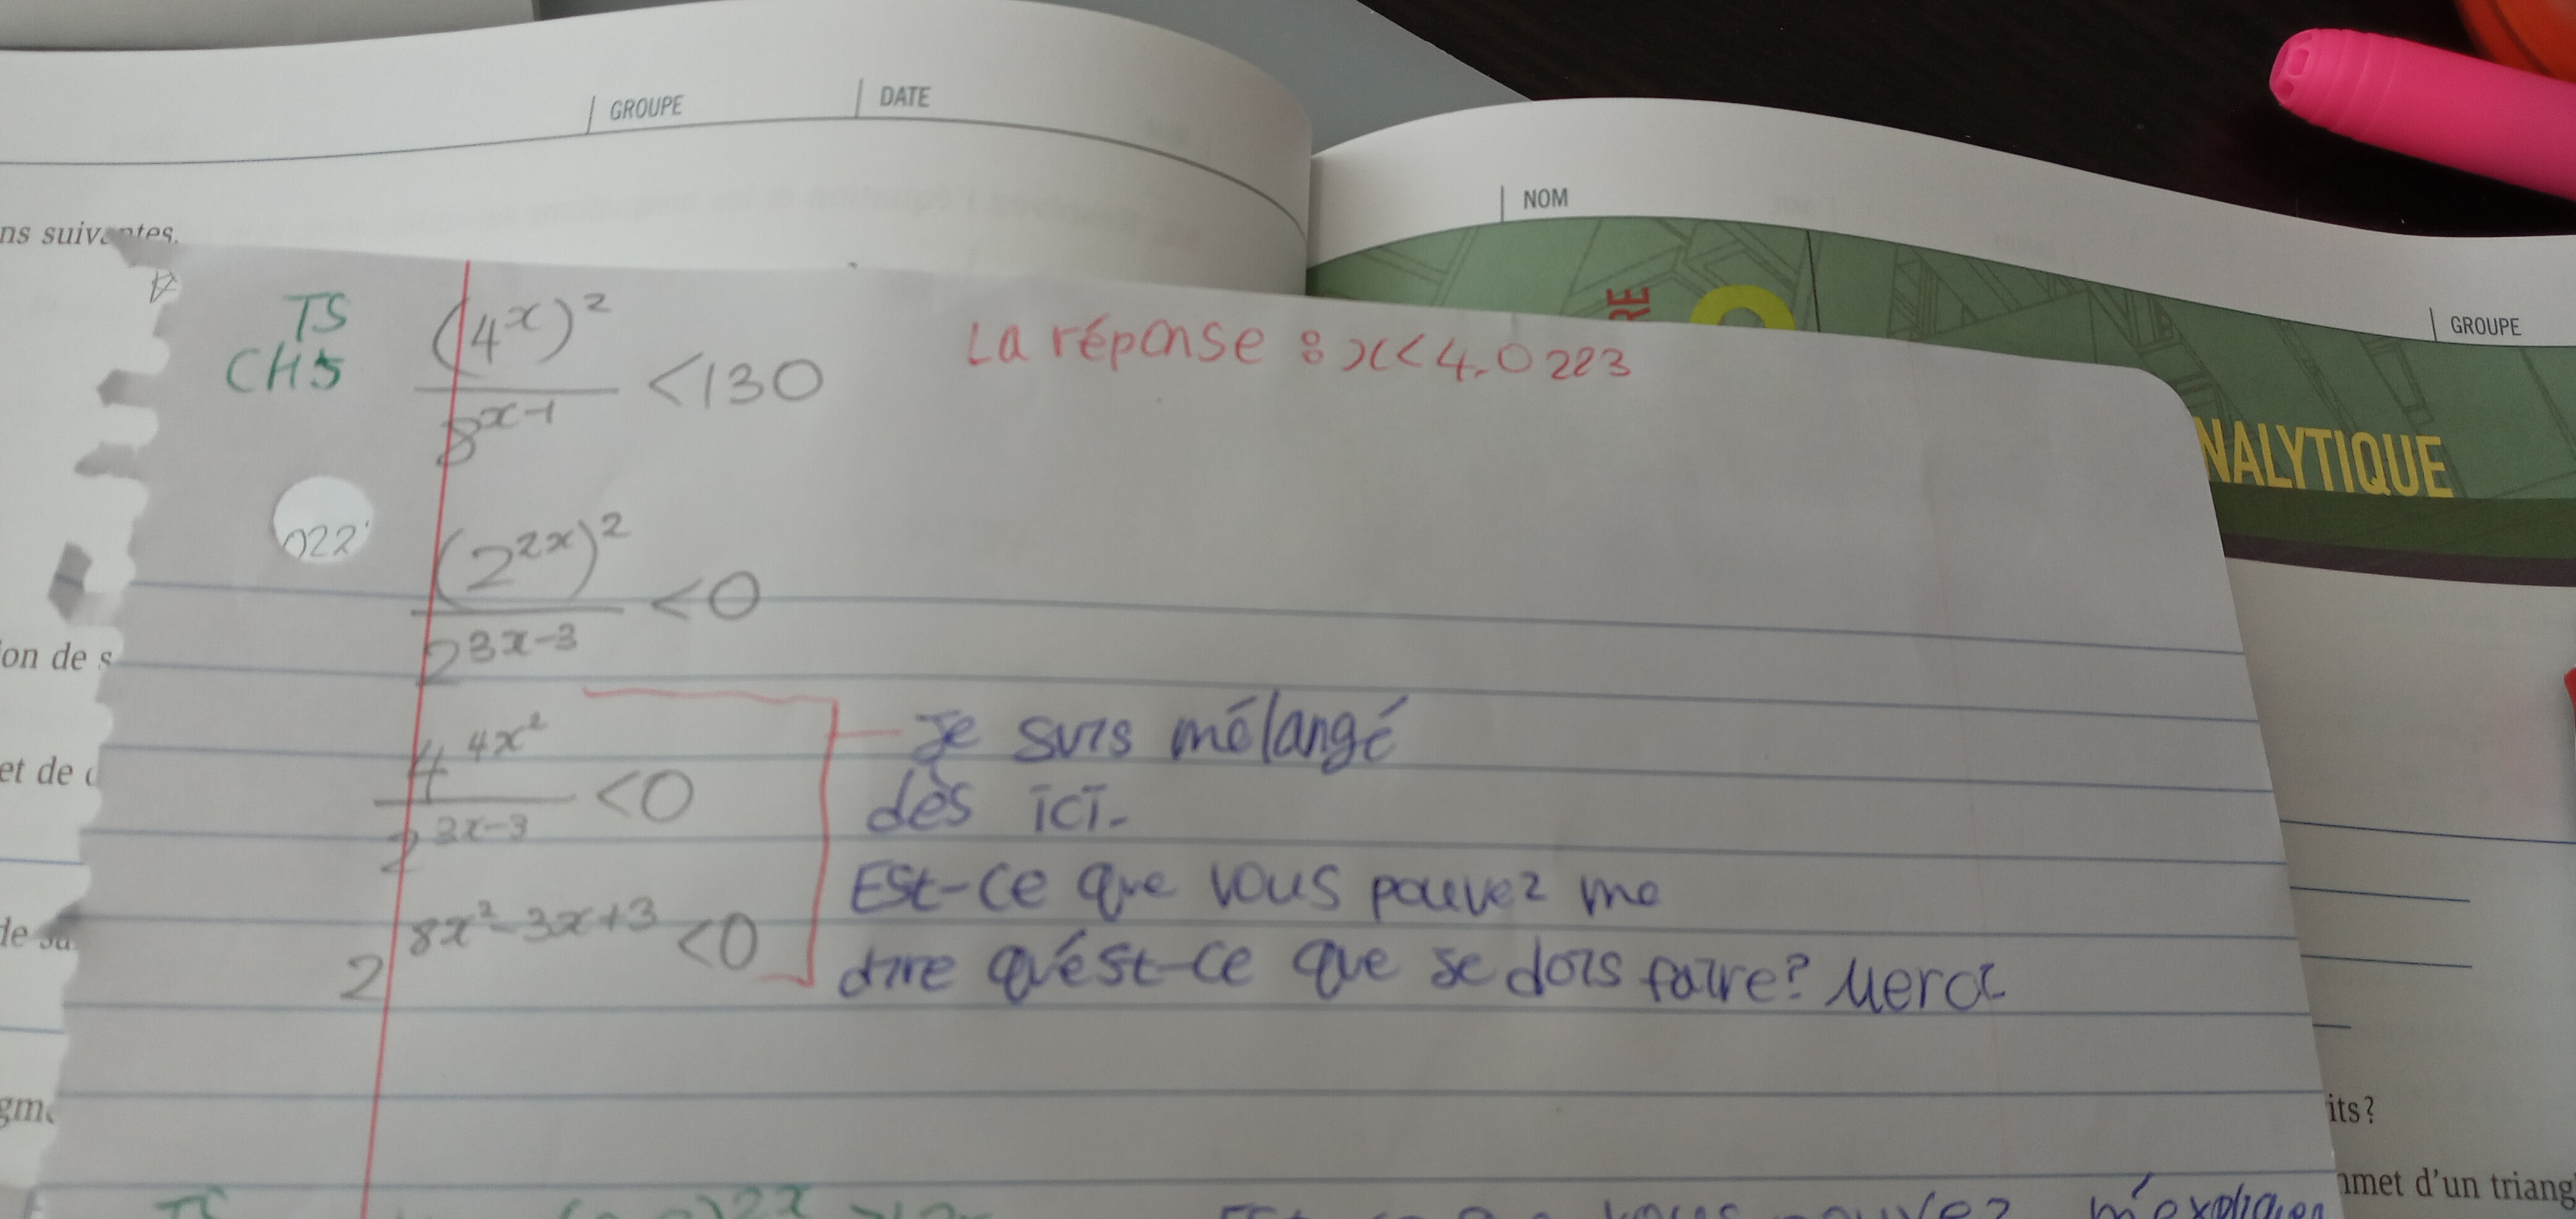 GROUPE
DATE
NOM
GROUPE
NALYTIQUE
ns suivantes.
TS
CH5
(4^x)^2 / 8^(x-1) <130
La réponse : x<4.0223
022
(2^(2x))^2 / 2^(3x-3) <0
on de s
4^(4x^2) / 2^(3x-3) <0
Je suis mélangé
dès ici.
et de
2^(8x^2-3x+3) <0
Est-ce que vous pouvez me
dire qu'est-ce que je dois faire? Merci
de
gme
its?
mmet d'un triang
TS
2x
m'expliquer